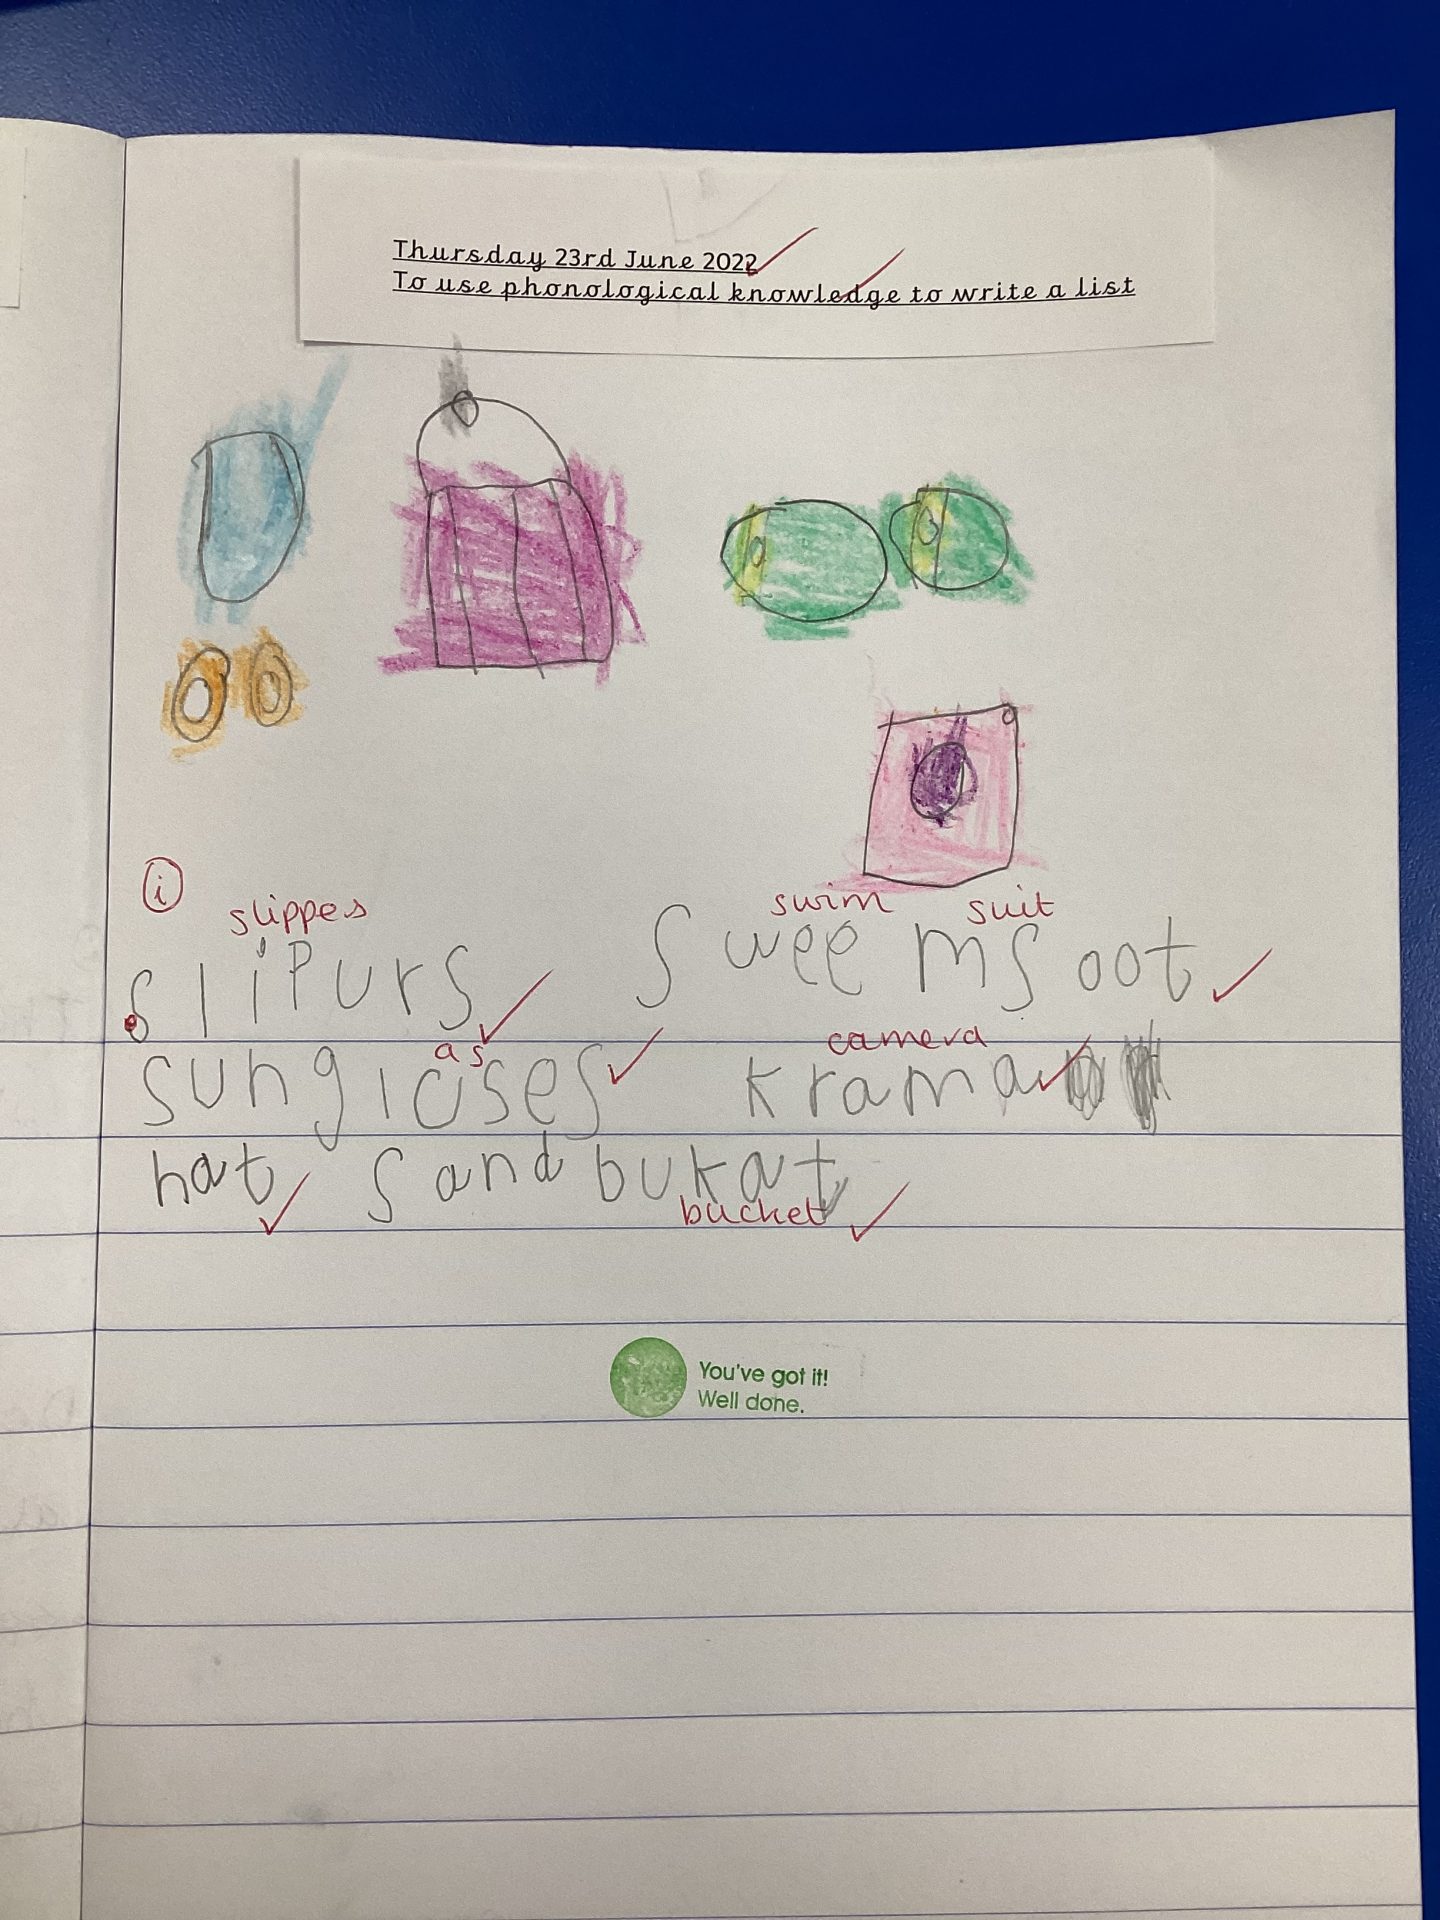 Thursday 23rd June 2022
To use phonological knowledge to write a list
i
slippes swim suit
slipurs sweemsoot
as camera
sunglases krama
hat sandbukat
bucket
You've got it!
Well done.